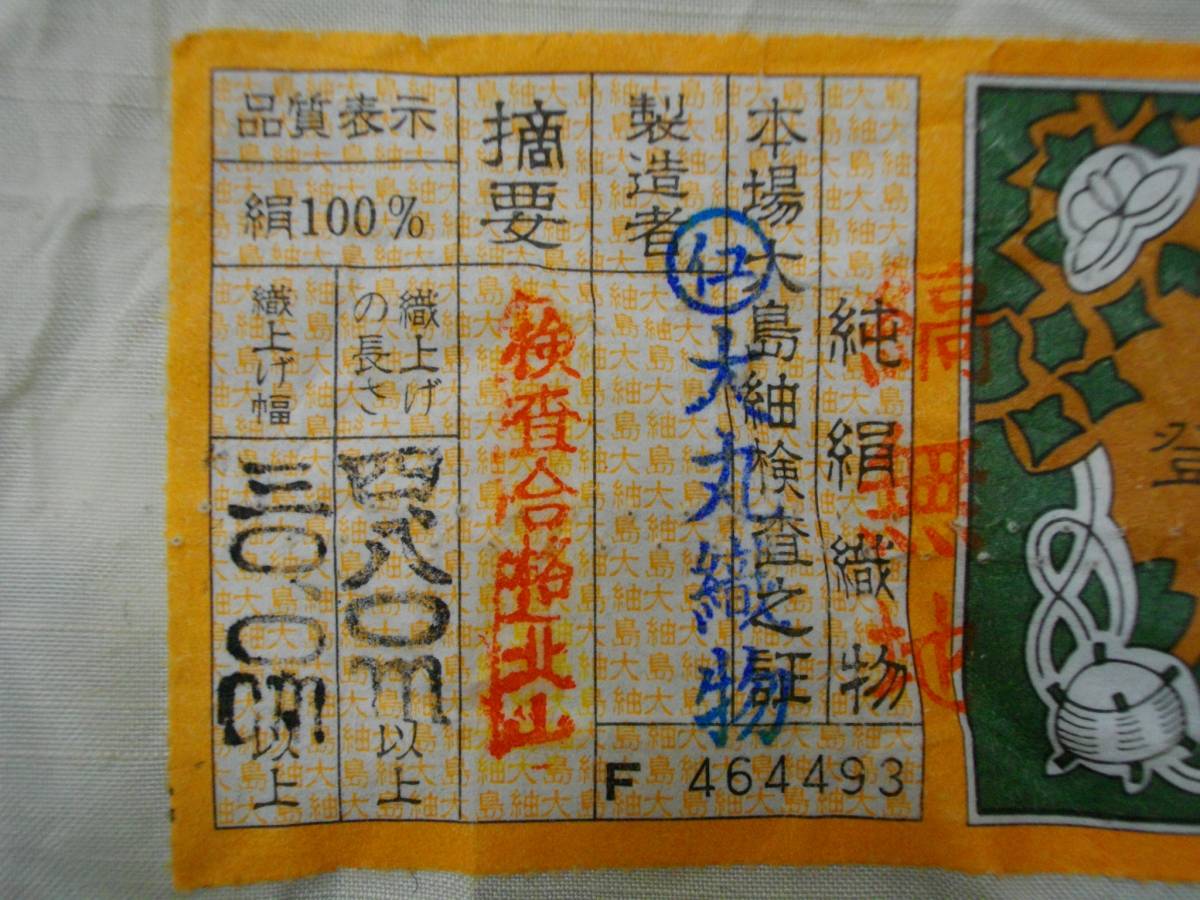 純絹織物
縞無地
本場大島紬検査之証
製造者
仁
大丸織物
F 464493
摘要
検査合格
北山
品質表示
絹100%
織上げの長さ
四、八〇m以上
織上げ幅
三〇、〇cm以上
登